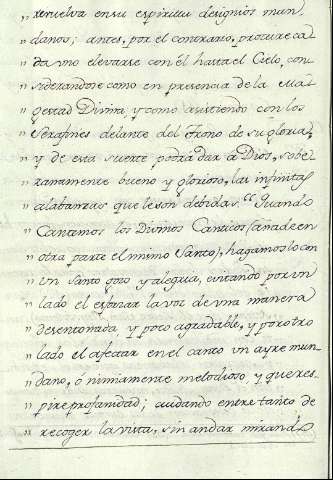 „ rebuelva en su espiritu designios mun„
„ danos; antes, por el contrario, procure ca„
„ da uno elevarse con él hasta el Cielo, con„
„ siderandose como en presencia de la Ma„
„ gestad Divina y como asistiendo con los
„ Serafines delante del trono de su gloria,
„ y de esta suerte podrá dar a Dios, sobe„
„ ranamente bueno y glorioso, las infinitas
„ alabanzas que le son debidas. Quando
„ Cantemos los Divinos Canticos (añade en
„ otra parte el mismo Santo), hagamoslo con
„ un Santo gozo y alegria, evitando por un
„ lado el esforzar la voz de una manera
„ desentonada y poco agradable, y por otro
„ lado el afectar en el canto un ayre mun„
„ dano, ó nimiamente melodioso, y que res„
„ pire profanidad; cuidando entre tanto de
„ recoger la vista, sin andar mirando